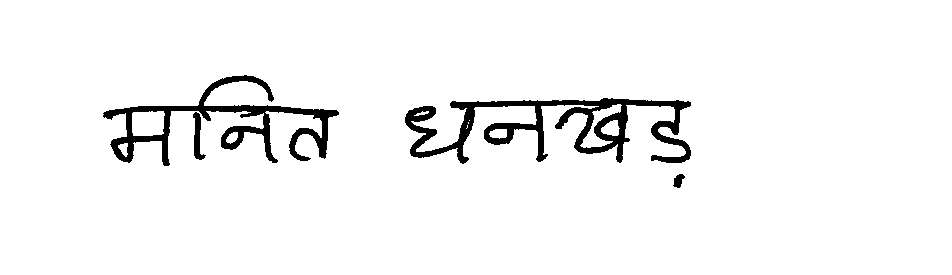 मनित धनखड़